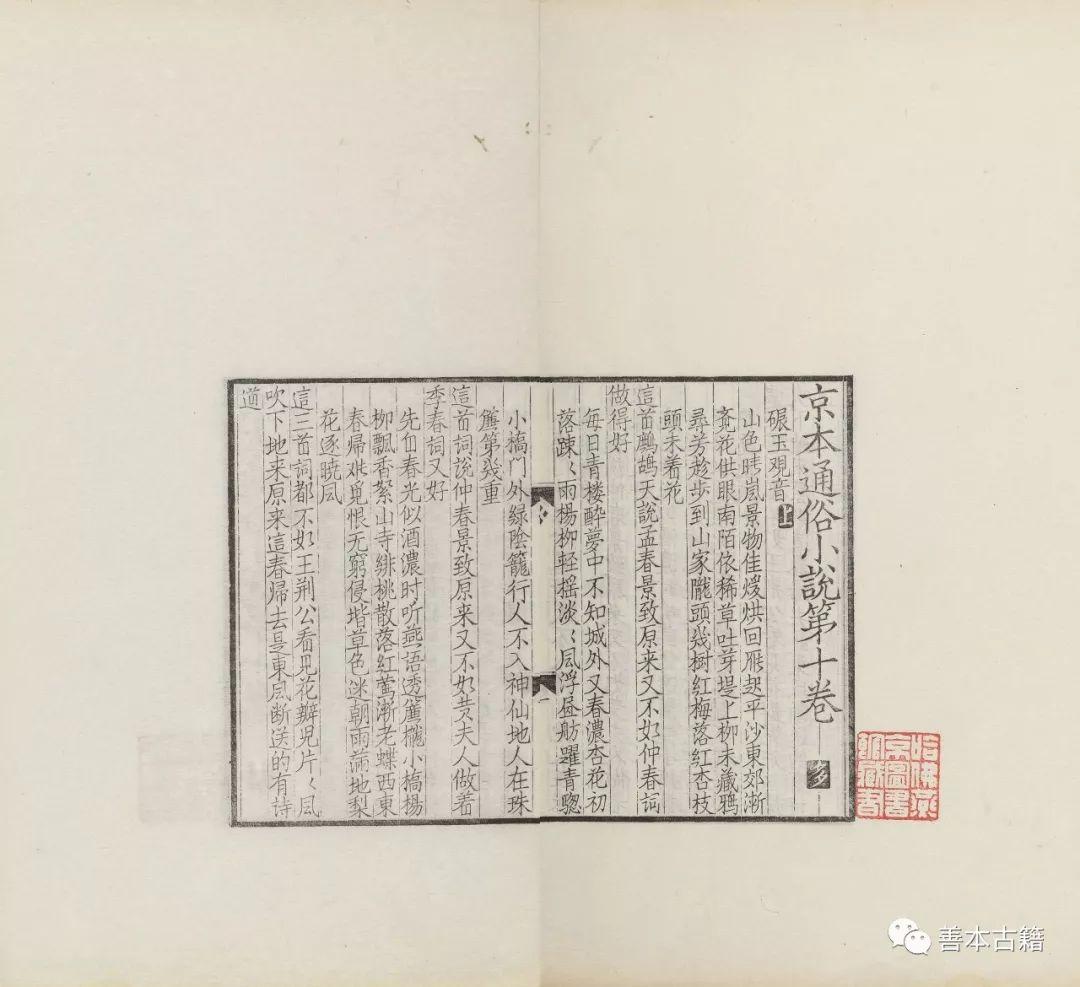 京本通俗小説第十卷
碾玉观音上
山色晴嵐景物佳煖烘回雁起平沙東郊漸
竟花供眼南陌依稀草吐芽堤上柳未藏鸦
尋芳趁步到山家隴頭幾樹红梅落红杏枝
頭未着花
這首鷓鴣天說孟春景致原来又不如仲春詞
做得好
每日青楼醉夢中不知城外又春濃杏花初
落踈〻雨楊柳軽摇淡〻風浮昼舫躍青騘
小橋門外緑陰籠行人不入神仙地人在珠
簾第幾重
這首詞說仲春景致原来又不如黄夫人做着
季春詞又好
先自春光似酒濃时听燕语透簾櫳小橋楊
柳飄香絮山寺緋桃散落红莺漸老蝶西東
春帰难覓恨无窮侵堦草色迷朝雨满地梨
花逐暁風
這三首詞都不如王荆公看見花瓣児片〻風
吹下地来原来這春帰去是東風断送的有诗
道
哈佛燕
京圖書
館藏書
善本古籍